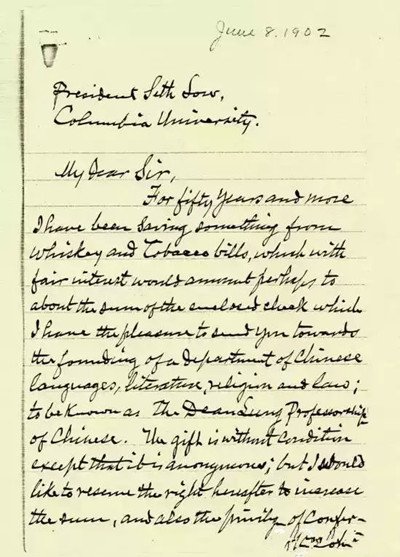 June 8. 1902
President Seth Low,
Columbia University.
My Dear Sir,
For fifty years and more
I have been saving something from
Whiskey and Tobacco bills, which with
fair interest would amount perhaps to
about the sum of the enclosed check which
I have the pleasure to send you towards
the founding of a department of Chinese
languages, literature, religion and law;
to be known as The Dean Lung Professorship
of Chinese. The gift is without condition
except that it is anonymous; but I would
like to reserve the right hereafter to increase
the sum, and also the of Confer-